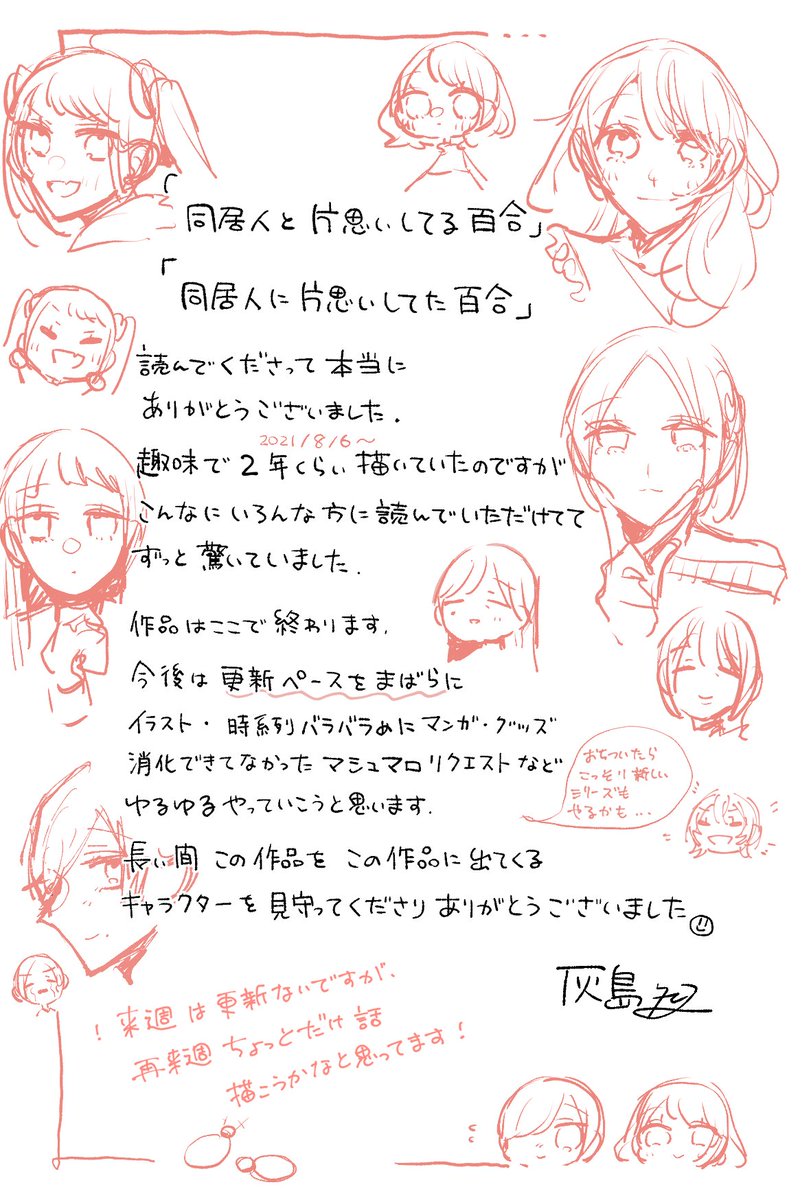 「同居人と片思いしてる百合」
「同居人に片思いしてた百合」
読んでくださって本当に
ありがとうございました.
2021/8/6～
趣味で2年くらい描いていたのですが
こんなにいろんな方に読んでいただけてて
ずっと驚いていました.
作品はここで終わります.
今後は更新ペースをまばらに
イラスト・時系列バラバラめにマンガ・グッズ
消化できてなかったマシュマロリクエストなど
ゆるゆるやっていこうと思います.
おちついたら
こっそり新しい
シリーズも
やるかも...
長い間この作品をこの作品に出てくる
キャラクターを見守ってくださりありがとうございました
灰島
!来週は更新ないですが、
再来週ちょっとだけ話
描こうかなと思ってます!